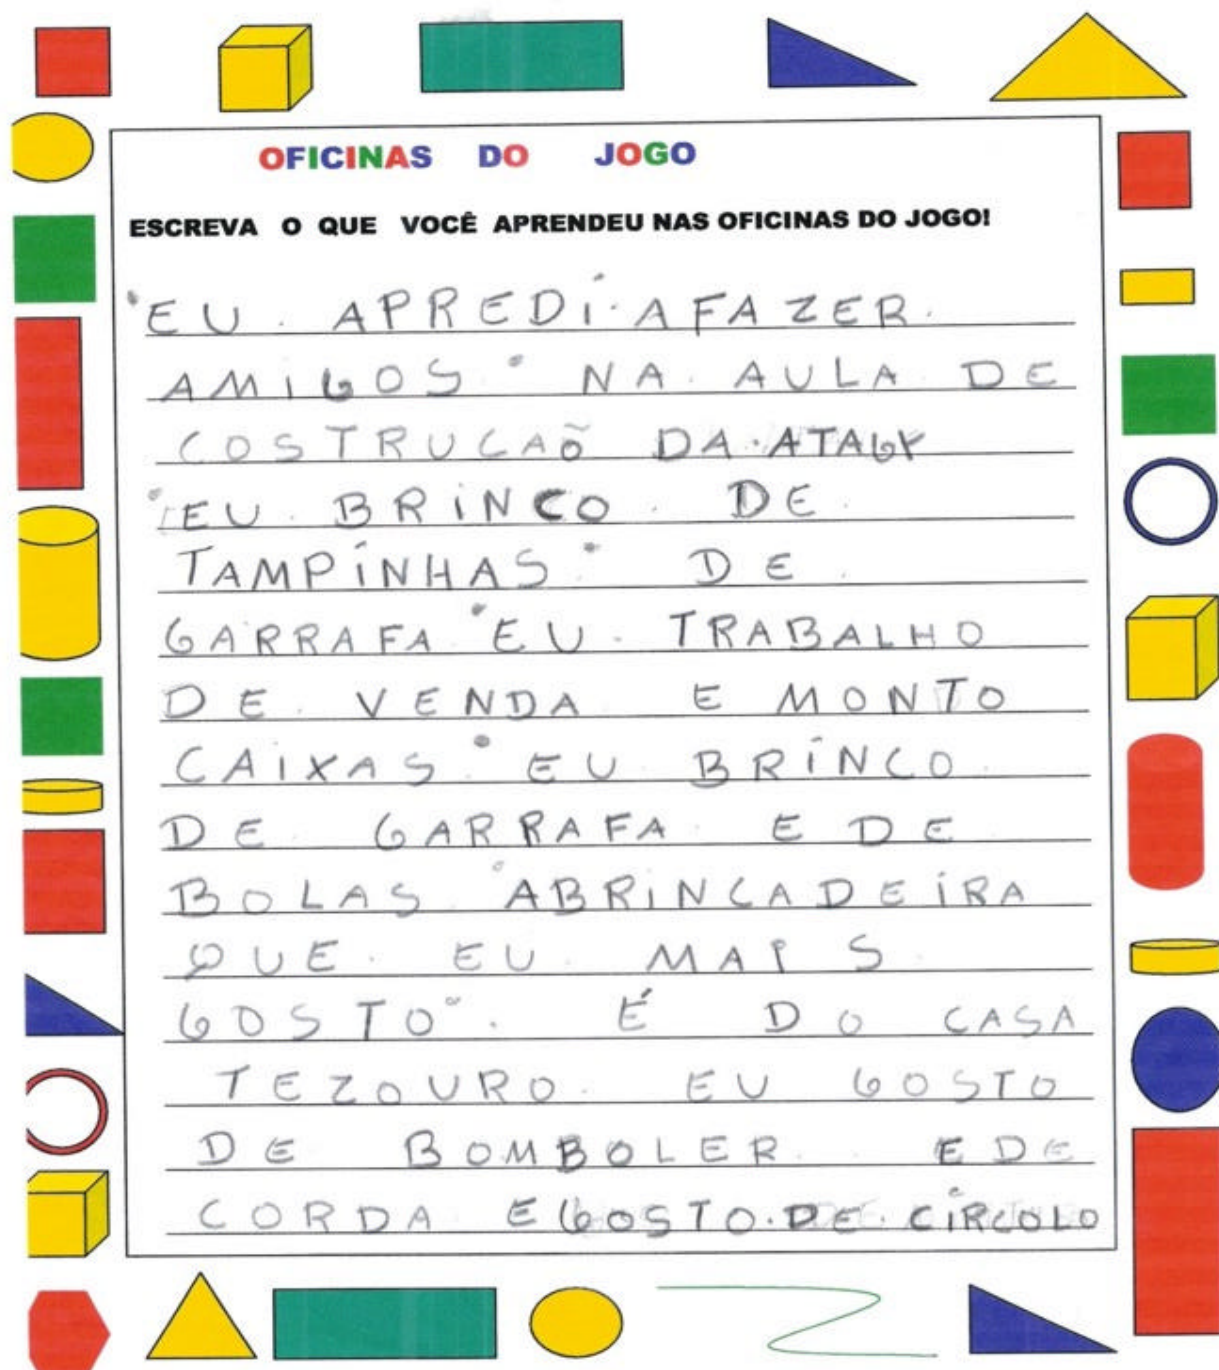 OFICINAS DO JOGO
ESCREVA O QUE VOCÊ APRENDEU NAS OFICINAS DO JOGO!
EU . APREDI . AFAZER .
AMIGOS . NA . AULA . DE
COSTRUCAÕ DA . ATAGY
EU . BRINCO . DE .
TAMPINHAS . DE .
GARRAFA EU . TRABALHO
DE . VENDA E MONTO
CAIXAS . EU . BRINCO .
DE . GARRAFA . E DE
BOLAS . ABRINCADEIRA
QUE . EU . MAIS
GOSTO . É DO CASA
TEZOURO . EU GOSTO
DE BOMBOLER . EDE
CORDA EGOSTO . DE . CÍRCOLO